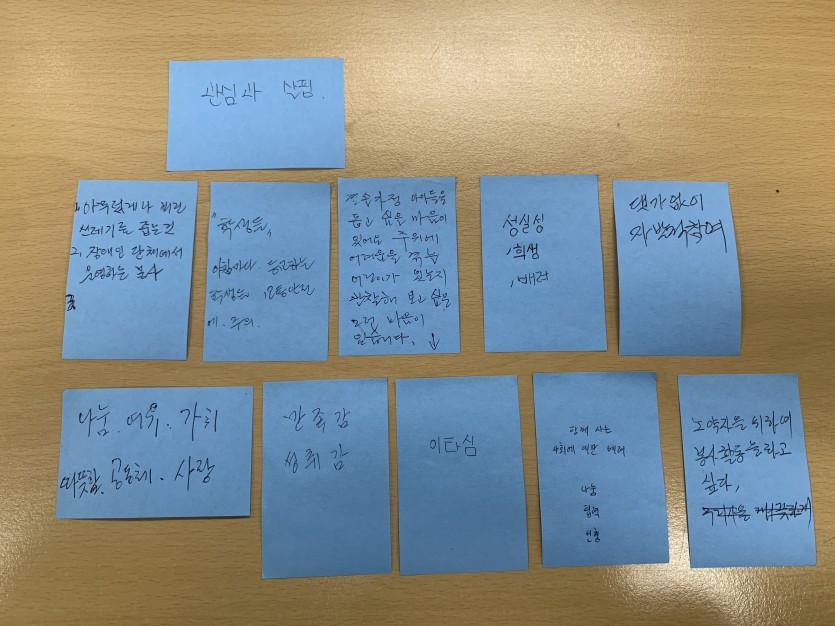 관심과 살핌.
1. 아무렇게나 버린
쓰레기를 줍는건
2, 장애인 단체에서
운영하는 봉사
"학생들,
아침마다 등교하는
학생들
에. 주의.
결손가정 아이들을
돕고 싶은 마음이
있어도 주위에
어려움을 겪는
어린이가 있는지
관찰해 보고 싶은
그런 마음이
있습니다, ↓
성실성
, 희생
, 배려
댓가없이
나눔. 여유. 가치
따뜻함. 공동체. 사랑
만족감
성취감
이타심
함께 사는
사회에 대한 배려
나눔
협력
노약자를 위하여
봉사활동을 하고
싶다,